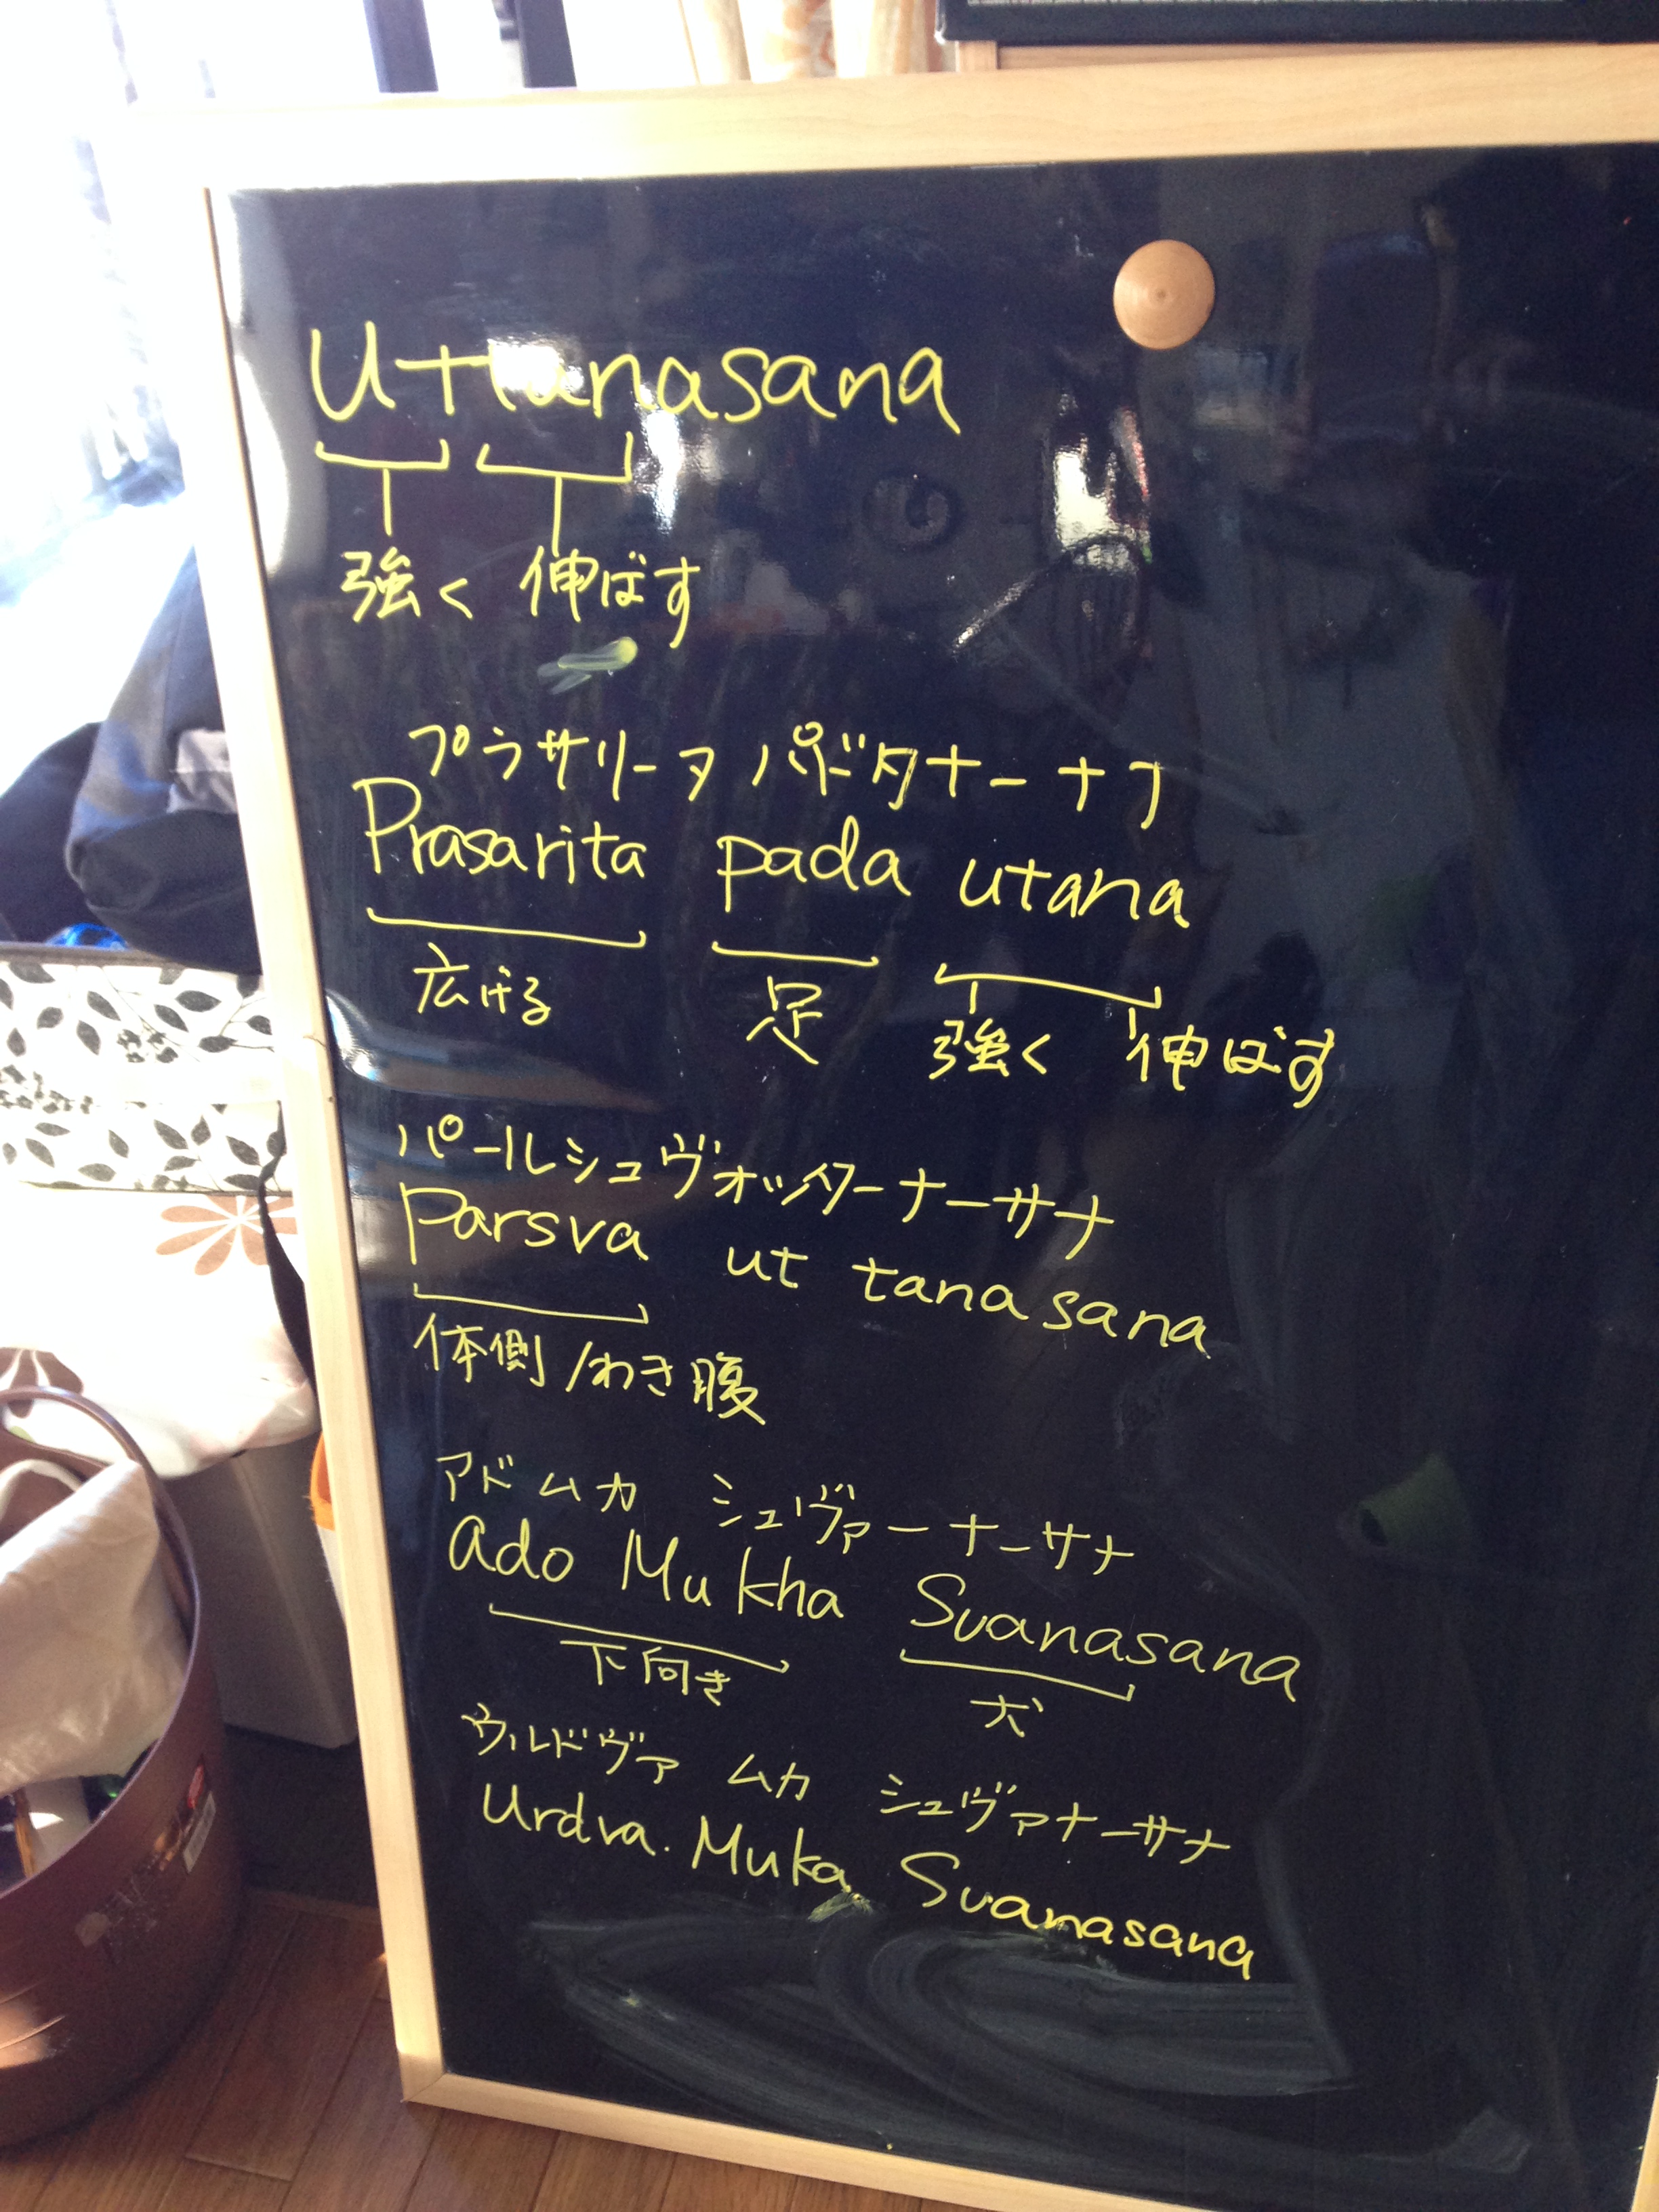 Uttanasana
強く 伸ばす
プラサリータ パードタナーナア
Prasarita pada utana
広げる 足 強く 伸ばす
パールシュヴォッターナーサナ
Parsva ut tanasana
体側/わき腹
アドムカ シュヴァーナーサナ
ado Mukha Svanasana
下向き 犬
ウルドヴァ ムカ シュヴァナーサナ
Urdva. Muka Svanasana